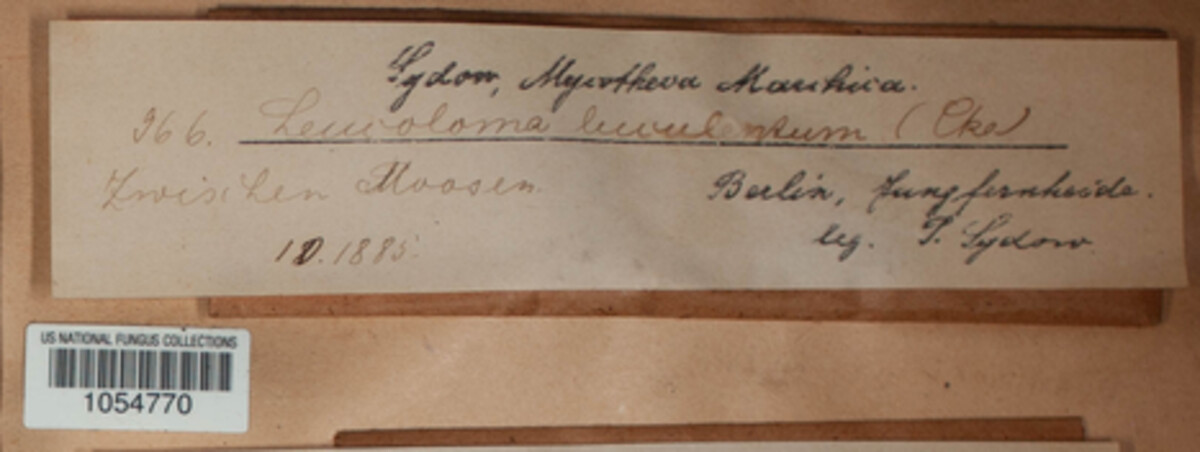 Sydow, Mycotheca Marchica.
966. Leucoloma luculentum (Cke)
Zwischen Moosen.
Berlin, Jungfernheide.
10. 1885.
leg. P. Sydow.
US NATIONAL FUNGUS COLLECTIONS
1054770